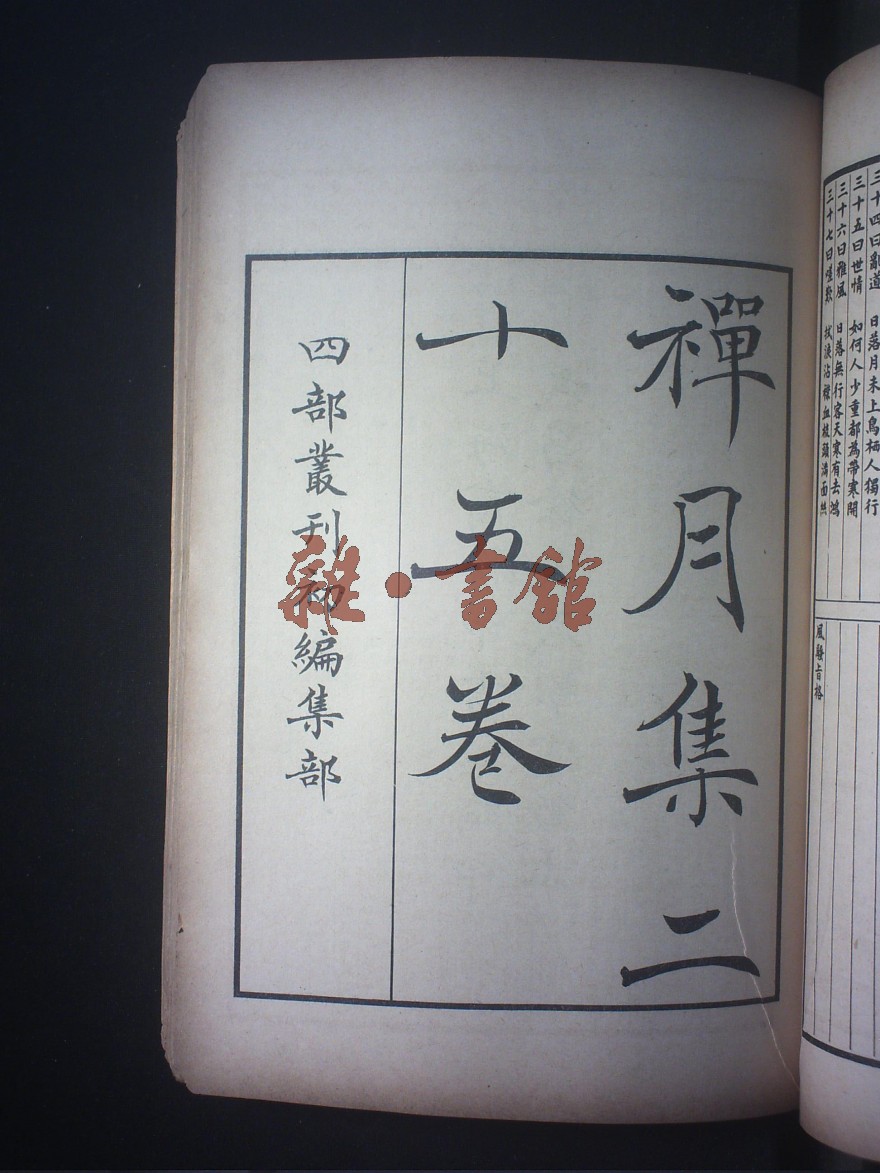 三十四曰亂道 日落月未上鳥栖人獨行
三十五曰世情 如何人少重都為帶寒開
三十六曰雅風 日落無行客天寒有去鴻
風騷旨格
禪月集二
十五卷
四部叢刊初編集部
雜·書館